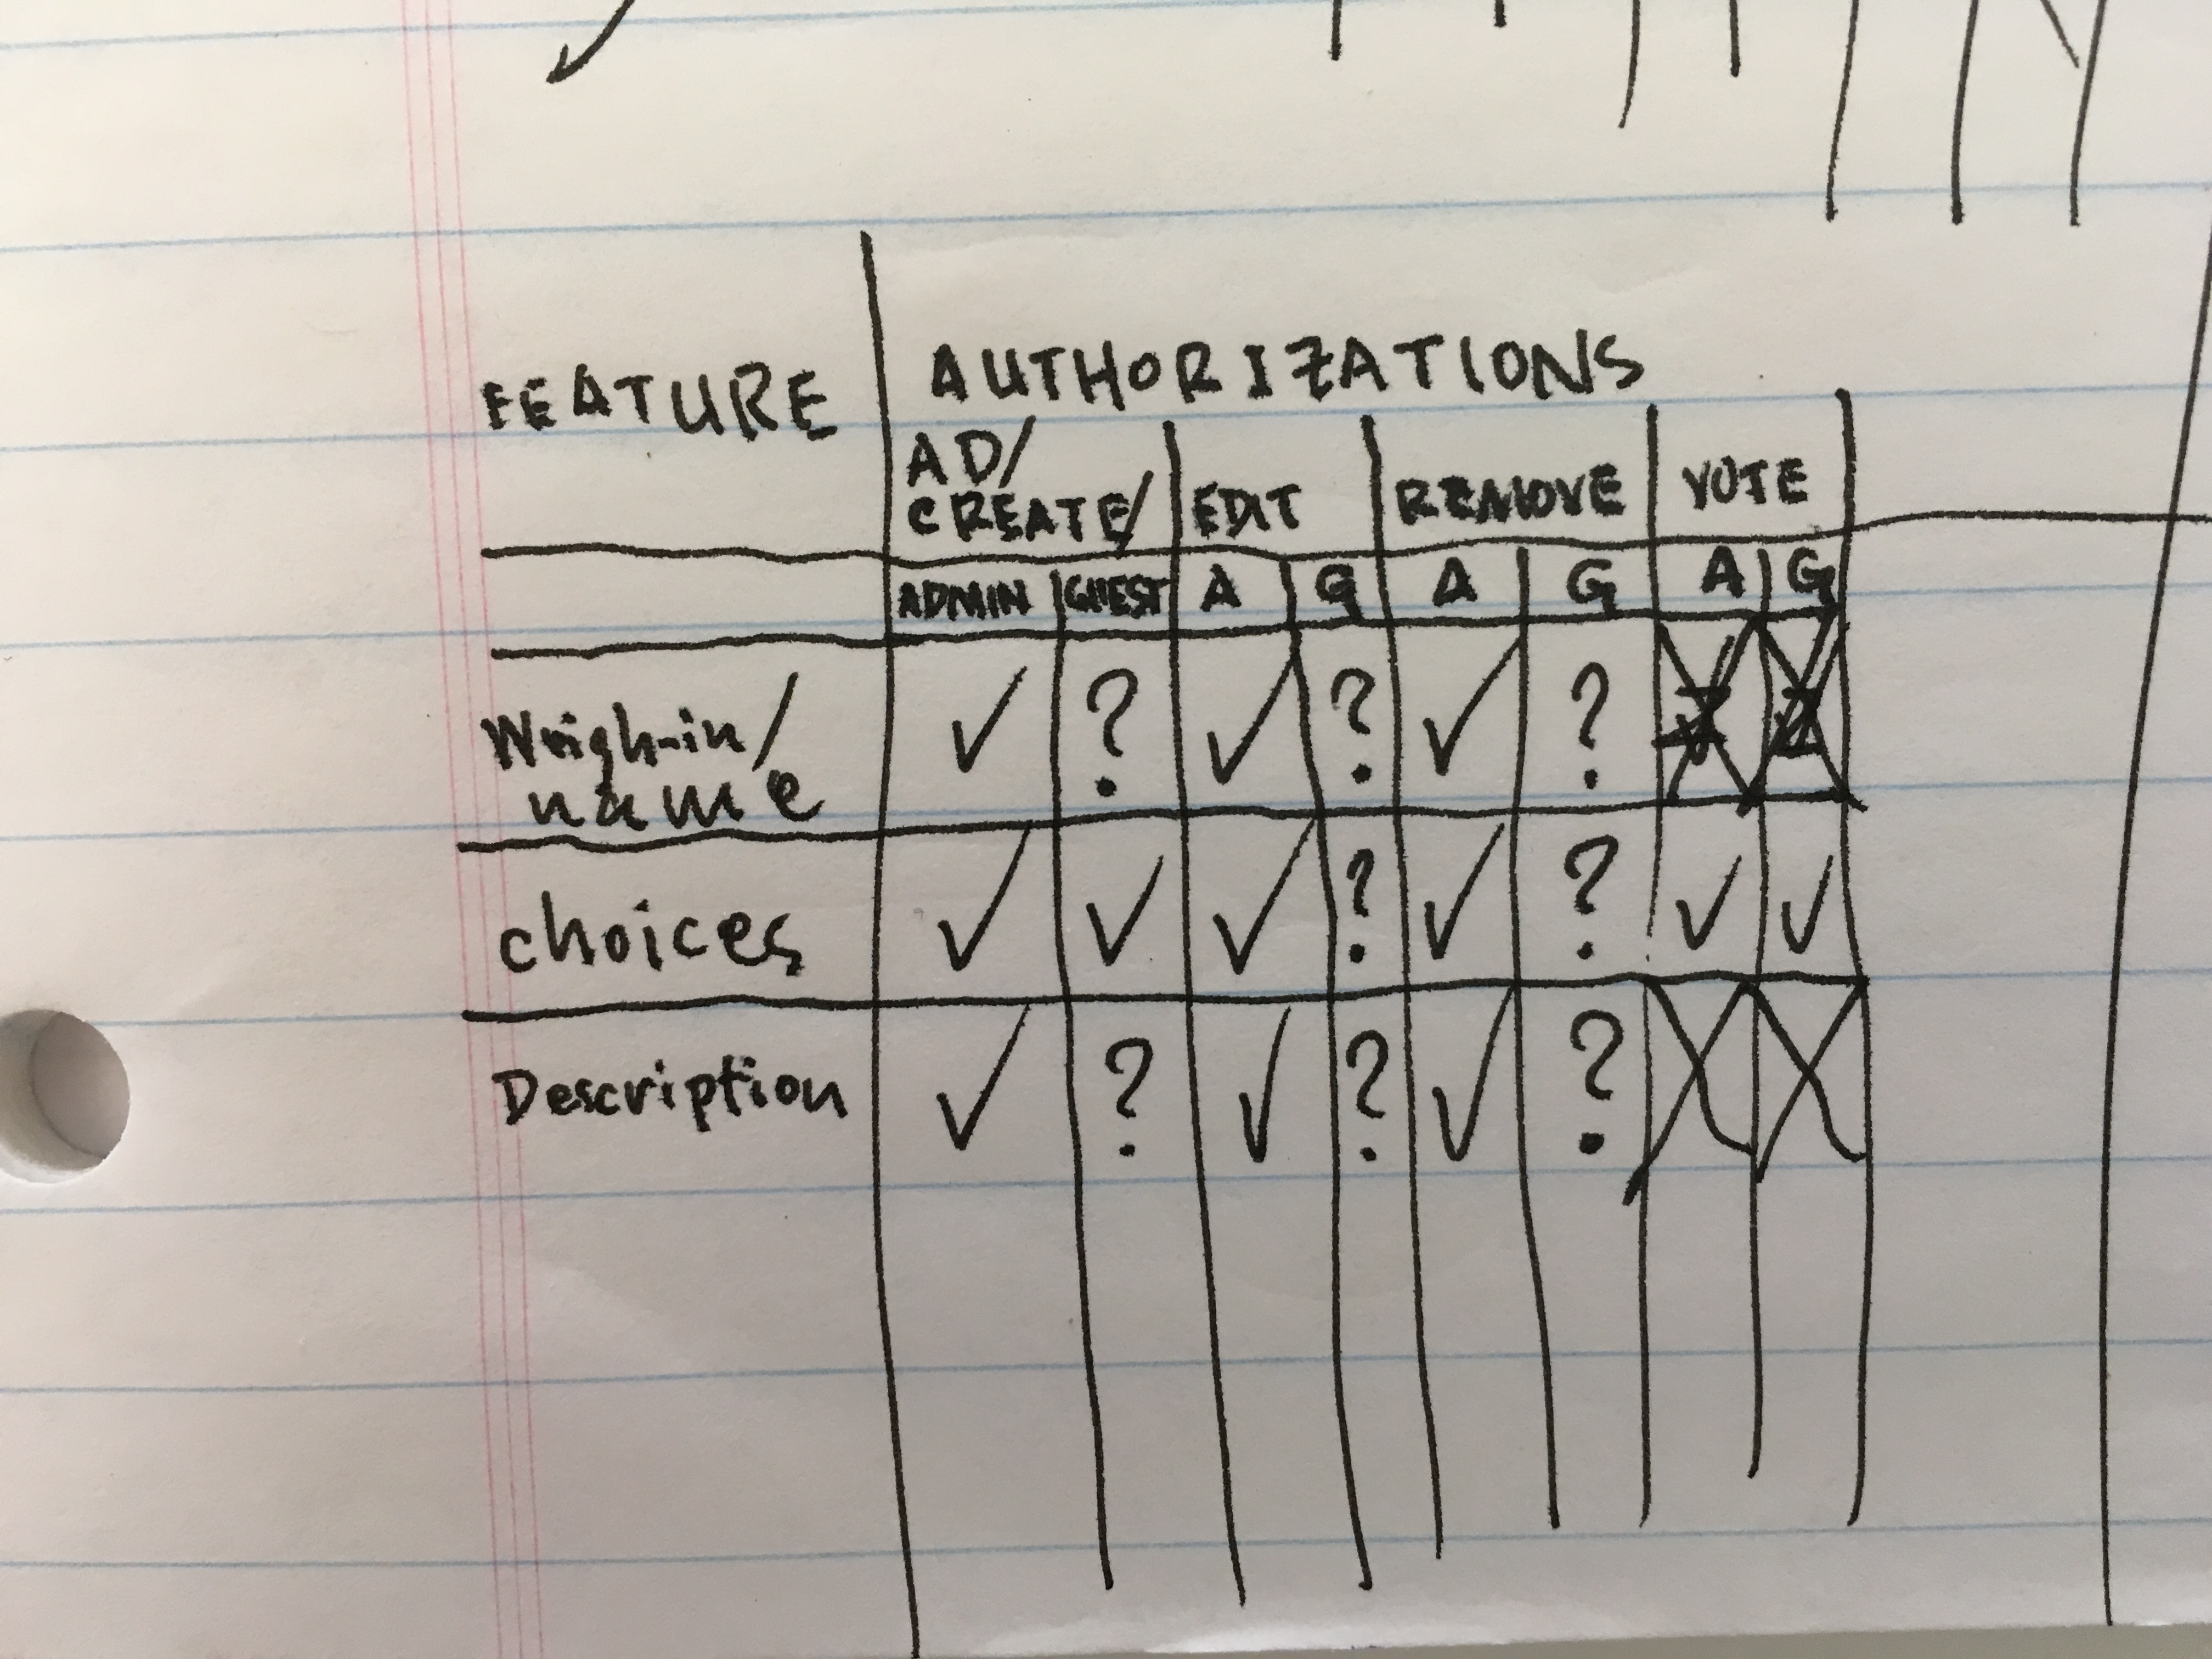 FEATURE AUTHORIZATIONS
AD/ CREATE/ EDIT REMOVE VOTE
ADMIN GUEST A G A G A G
Weigh-in/ name ✓ ? ✓ ? ✓ ?
choices ✓ ✓ ✓ ? ✓ ? ✓ ✓
Description ✓ ? ✓ ? ✓ ?